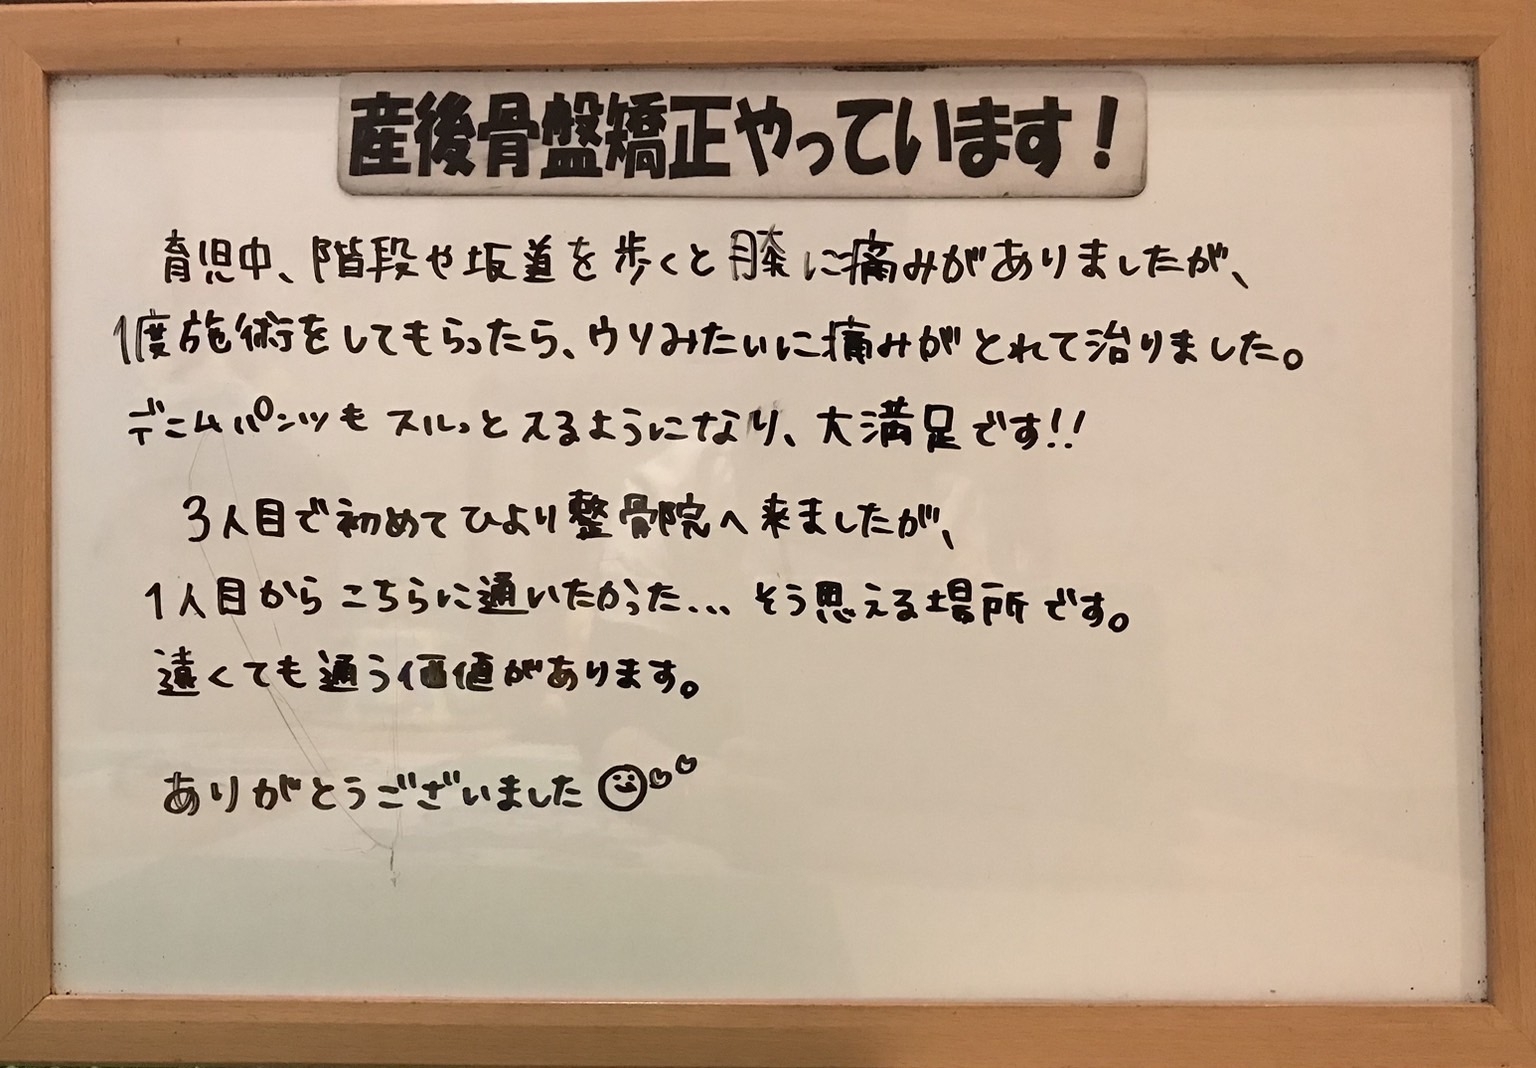 産後骨盤矯正やっています！
育児中、階段や坂道を歩くと膝に痛みがありましたが、
1度施術をしてもらったら、ウソみたいに痛みがとれて治りました。
デニムパンツもスルっとえるようになり、大満足です!!
3人目で初めてひより整骨院へ来ましたが、
1人目からこちらに通いたかった... そう思える場所です。
遠くても通う価値があります。
ありがとうございました